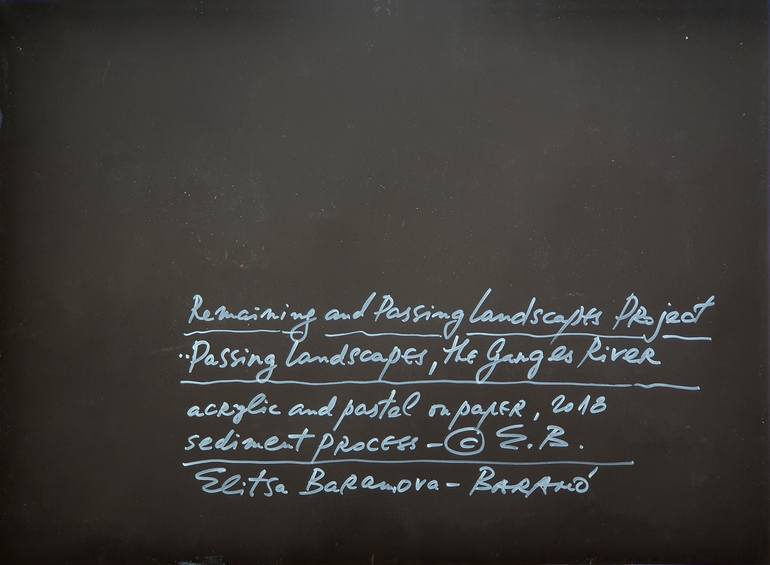 Remaining and Passing landscapes Project
"Passing landscapes, the Ganges River
acrylic and pastel on paper, 2018
sediment process - © E.B.
Elitsa Baramova - BARAMÓ